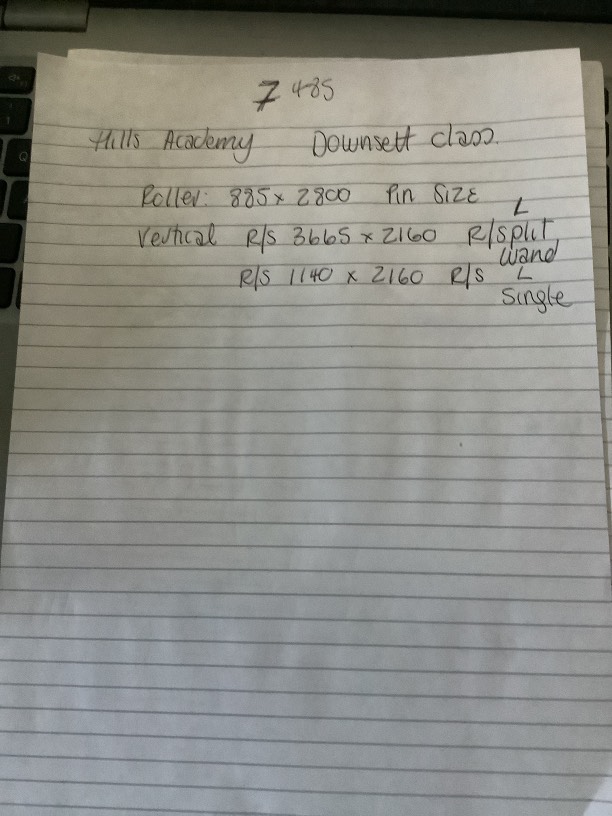 7 485
Hills Academy Downsett class.
Roller: 885 x 2800 Pin SIZE
L
Vertical R/S 3665 x 2160 R/split
Wand
R/S 1140 x 2160 R/S L
Single